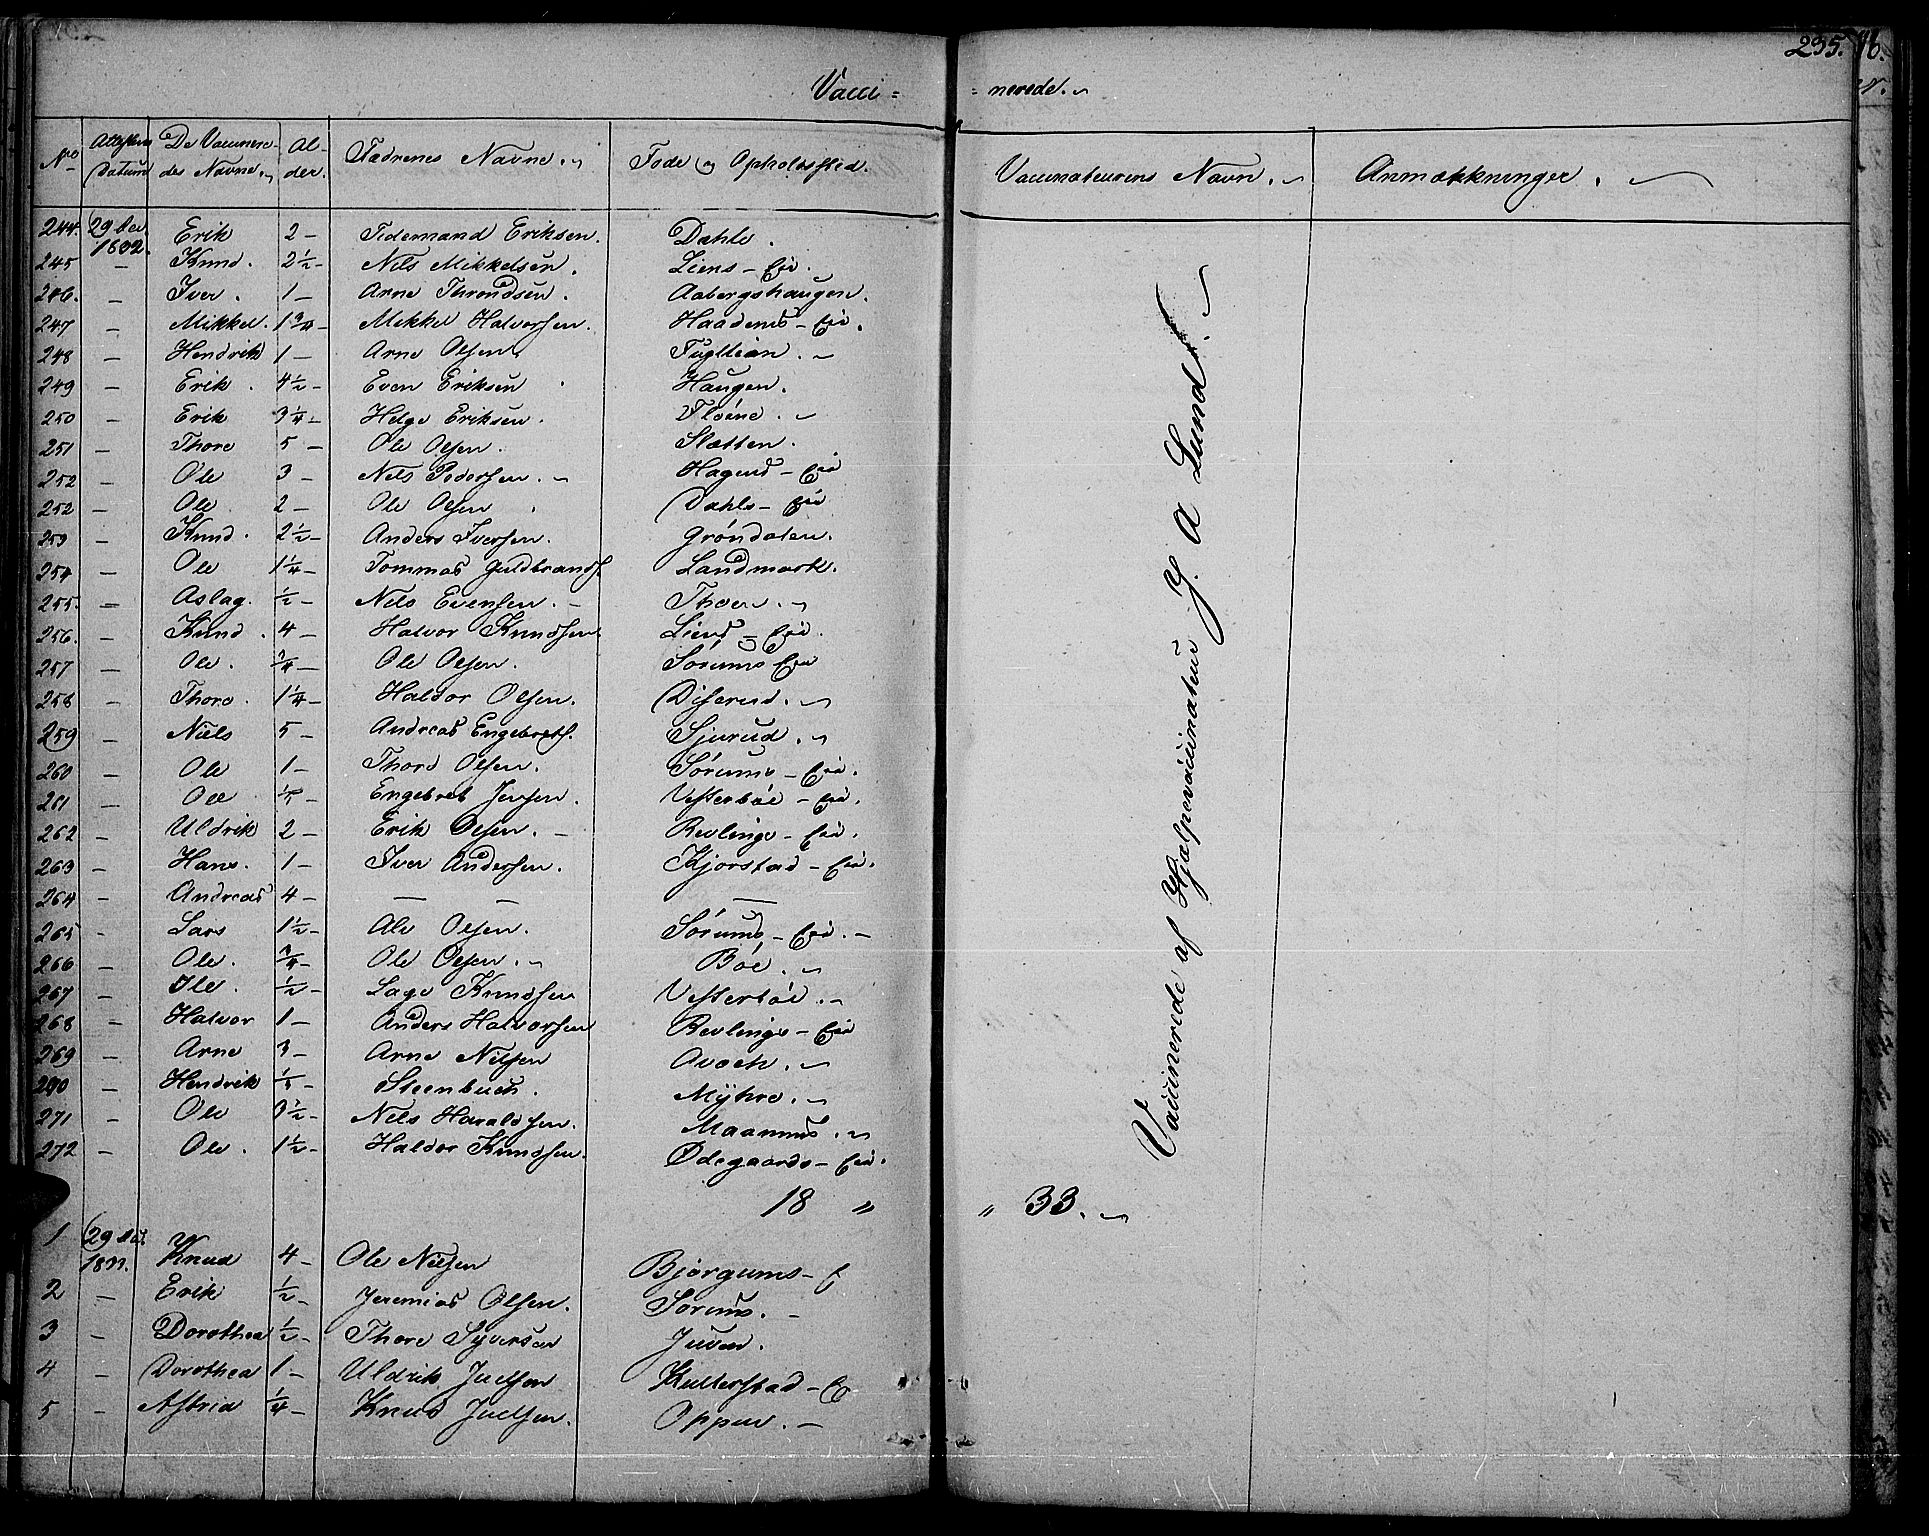 235.
Vacci = = nerede.
No Attestens Datum De Vaccinere- des Navne. Al- der. Fædrenes Navne. Føde og Opholdssted. Vaccinateurens Navn. Anmærkninger.
244. 29 Dec 1832. Erik 2 - Tidemand Eriksen. Dahle.
245 - Knud. 2½ - Nils Mikkelsen. Liens - Eie.
246. - Iver. 1 - Arne Throndsen. Aabergshaugen.
247 - Mikkel. 1¾ - Mikkel Halvorsen. Haadems - Eie.
248 - Hendrik 1 - Arne Olsen. Fugllien.
249 - Erik. 4½ - Even Eriksen. Haugen.
250 - Erik 3¼ - Helge Eriksen. Floene.
251 - Thore 5 - Ole Olsen. Slætten.
252 - Ole 3 - Nels Pedersen. Hagens - Eie
252 - Ole. 2 - Ole Olsen. Dahls - Eie
253 - Knud. 2½ - Anders Iversen. Gröndalen.
254 - Ole 1¼ - Tommas Guldbrands. Landmark.
255. - Aslag. ½ - Nels Evensen. Thoen.
256. - Knud. 4 - Halvor Knudsen Liens - Eie.
257 - Ole. ¾ - Ole Olsen. Sörums Eie
258 - Thore. 1¼ - Haldor Olsen. Diserud.
259 - Niels 5 - Andreas Engebrets. Sjurud.
260 - Ole 1 - Thord Olsen. Sörums - Eie.
261 - Ole Engebret Jensen. Vesterböe - Eie.
262 - Uldrik 2 - Erik Olsen. Revlinge - Eie.
263 - Hans. 1 - Iver Andersen. Kjorstad - Eie.
264 - Andreas 4 - — — —
265 - Lars 1½ - Ole Olsen. Sörums - Eie.
266 - Ole. ¾ - Ole Olsen. Böe.
267 - Ole. ½ - Lage Knudsen Vesterböe.
268 - Halvor 1 - Anders Halvorsen Revlinge - Eie
269 - Arne 3 - Arne Nilsen
290 - Hendrik Steenbuch. Myhre.
271 - Ole 3½ - Nels Haraldsen. Maanum.
272 - Ole. 1½ - Haldor Knudsen. Ödegaards - Eie.
18 " " 33.
1 29 Dec. Knud 4 - Ole Nilsen Bjørgums - E
2 - Erik ½ - Jeremias Olsen. Sorums.
3 - Dorothea ½ - Thore Syversen Juven.
4 - Dorothea 1 - Uldrik Juelsen Kulterstad - E
5 - Astrid ¼ - Knud Juelsen. Oppen.
Vaccinerede af Hjælpevaccinateur J. A Lund.